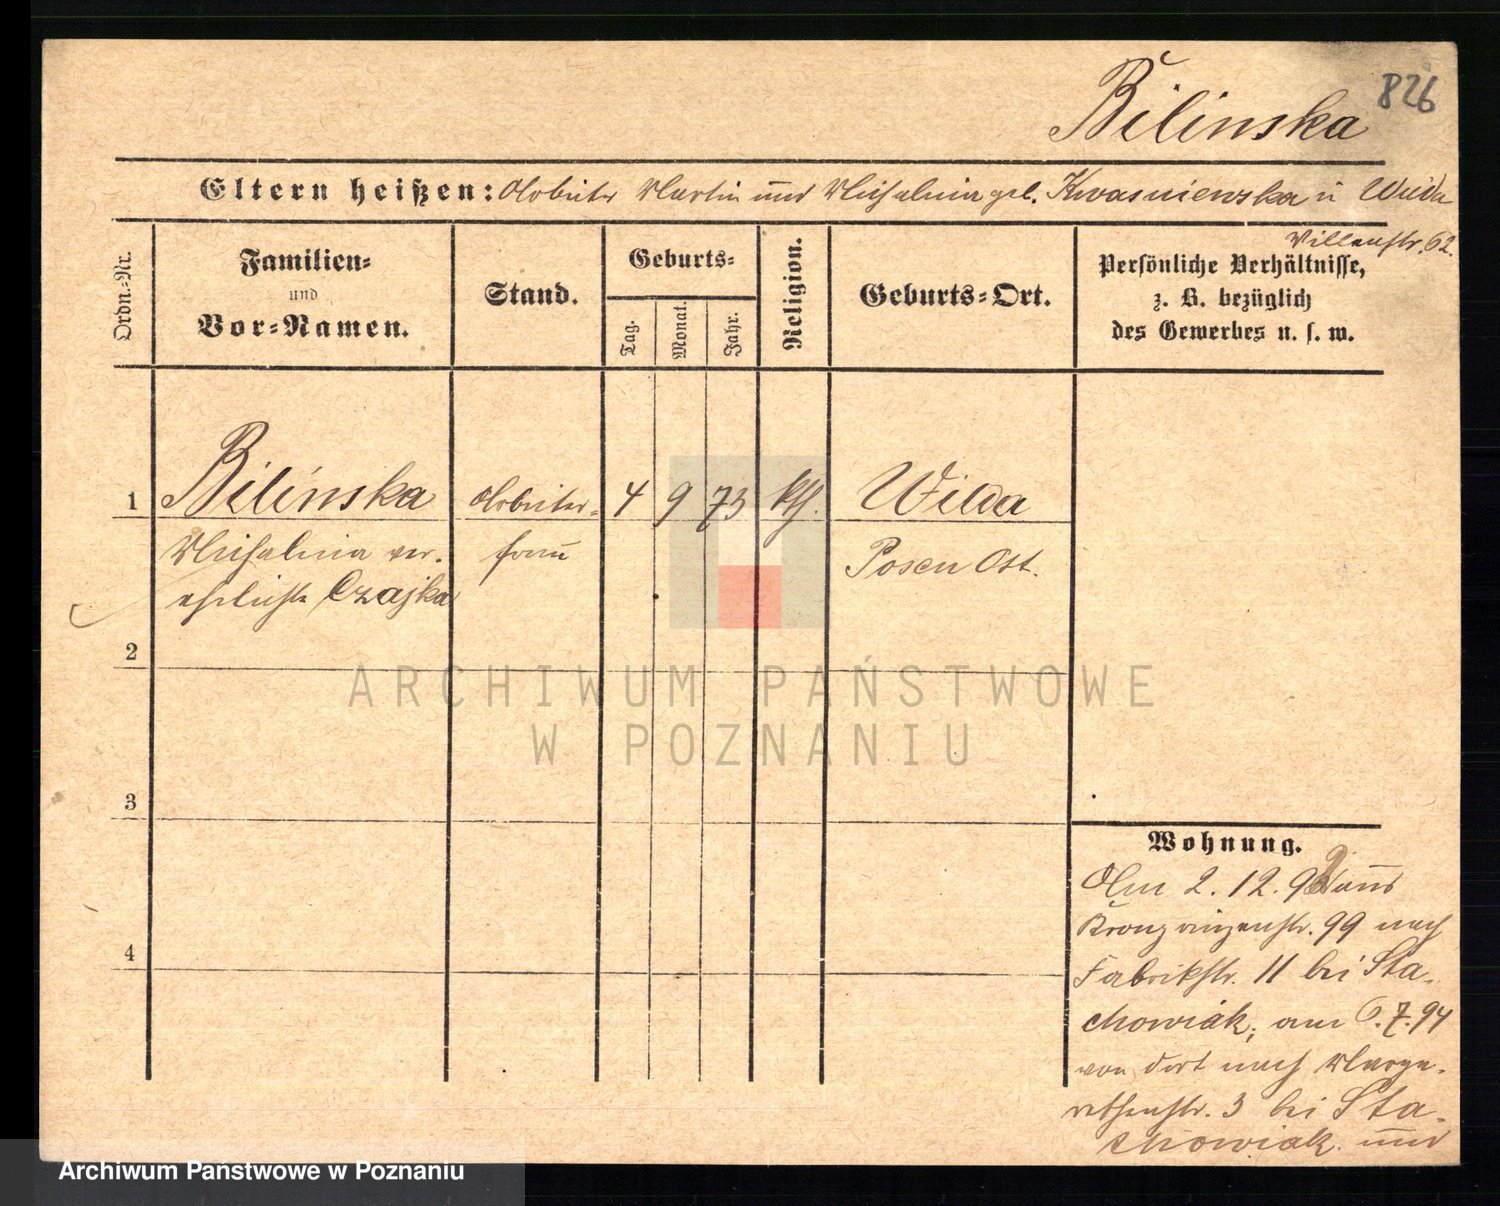 826
Bilinska
Eltern heißen: Arbeiter Martin und Michalina geb. Kwasniewska in Wilda
Villenstr. 62.
Ordn.-Nr.
Familien-
und
Vor-Namen.
Stand.
Geburts-
Tag.
Monat.
Jahr.
Religion.
Geburts-Ort.
Persönliche Verhältnisse,
z. B. bezüglich
des Gewerbes u. s. w.
1 Bilinska Arbeiter- 4 9 73 kth. Wilda
Michalina ver- frau Posen Ost.
ehelichte Czajka
2
3
4
Wohnung.
Am 2. 12. aus
Kronprinzenstr. 99 nach
Fabrikstr. 11 bei Sta-
chowiak, am 6.7.94
von dort nach Marga-
rethenstr. 3 bei Sta-
chowiak und
ARCHIWUM PAŃSTWOWE
W POZNANIU
Archiwum Państwowe w Poznaniu